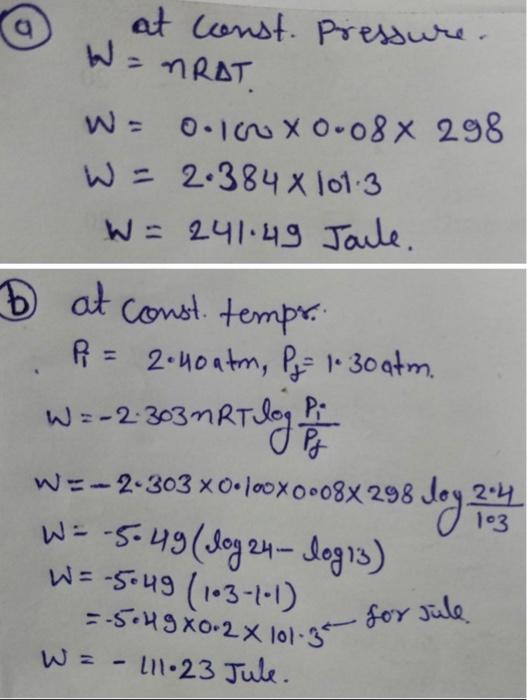 a at Const. Pressure.
W = nRΔT.
W = 0.100 × 0.08 × 298
W = 2.384 × 101.3
W = 241.49 Joule.
b at const. tempr.
Pi = 2.40 atm, Pf = 1.30 atm.
W = -2.303 nRT log Pi/Pf
W = -2.303 × 0.100 × 0.08 × 298 log 2.4/1.3
W = -5.49 (log 24 - log 13)
W = -5.49 (1.3 - 1.1)
= -5.49 × 0.2 × 101.3 ← for Jule.
W = - 111.23 Jule.